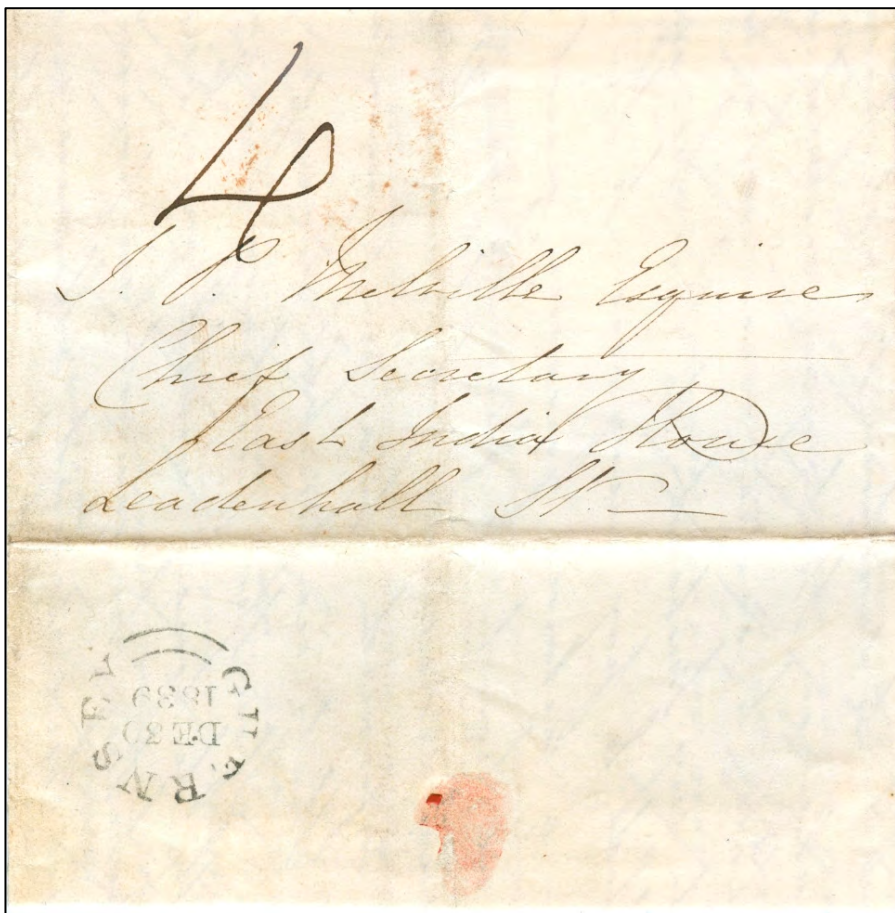 4
J. P. Melville Esquire
Chief Secretary
East India House
Leadenhall St.
GUERNSEY
DE 30
1839